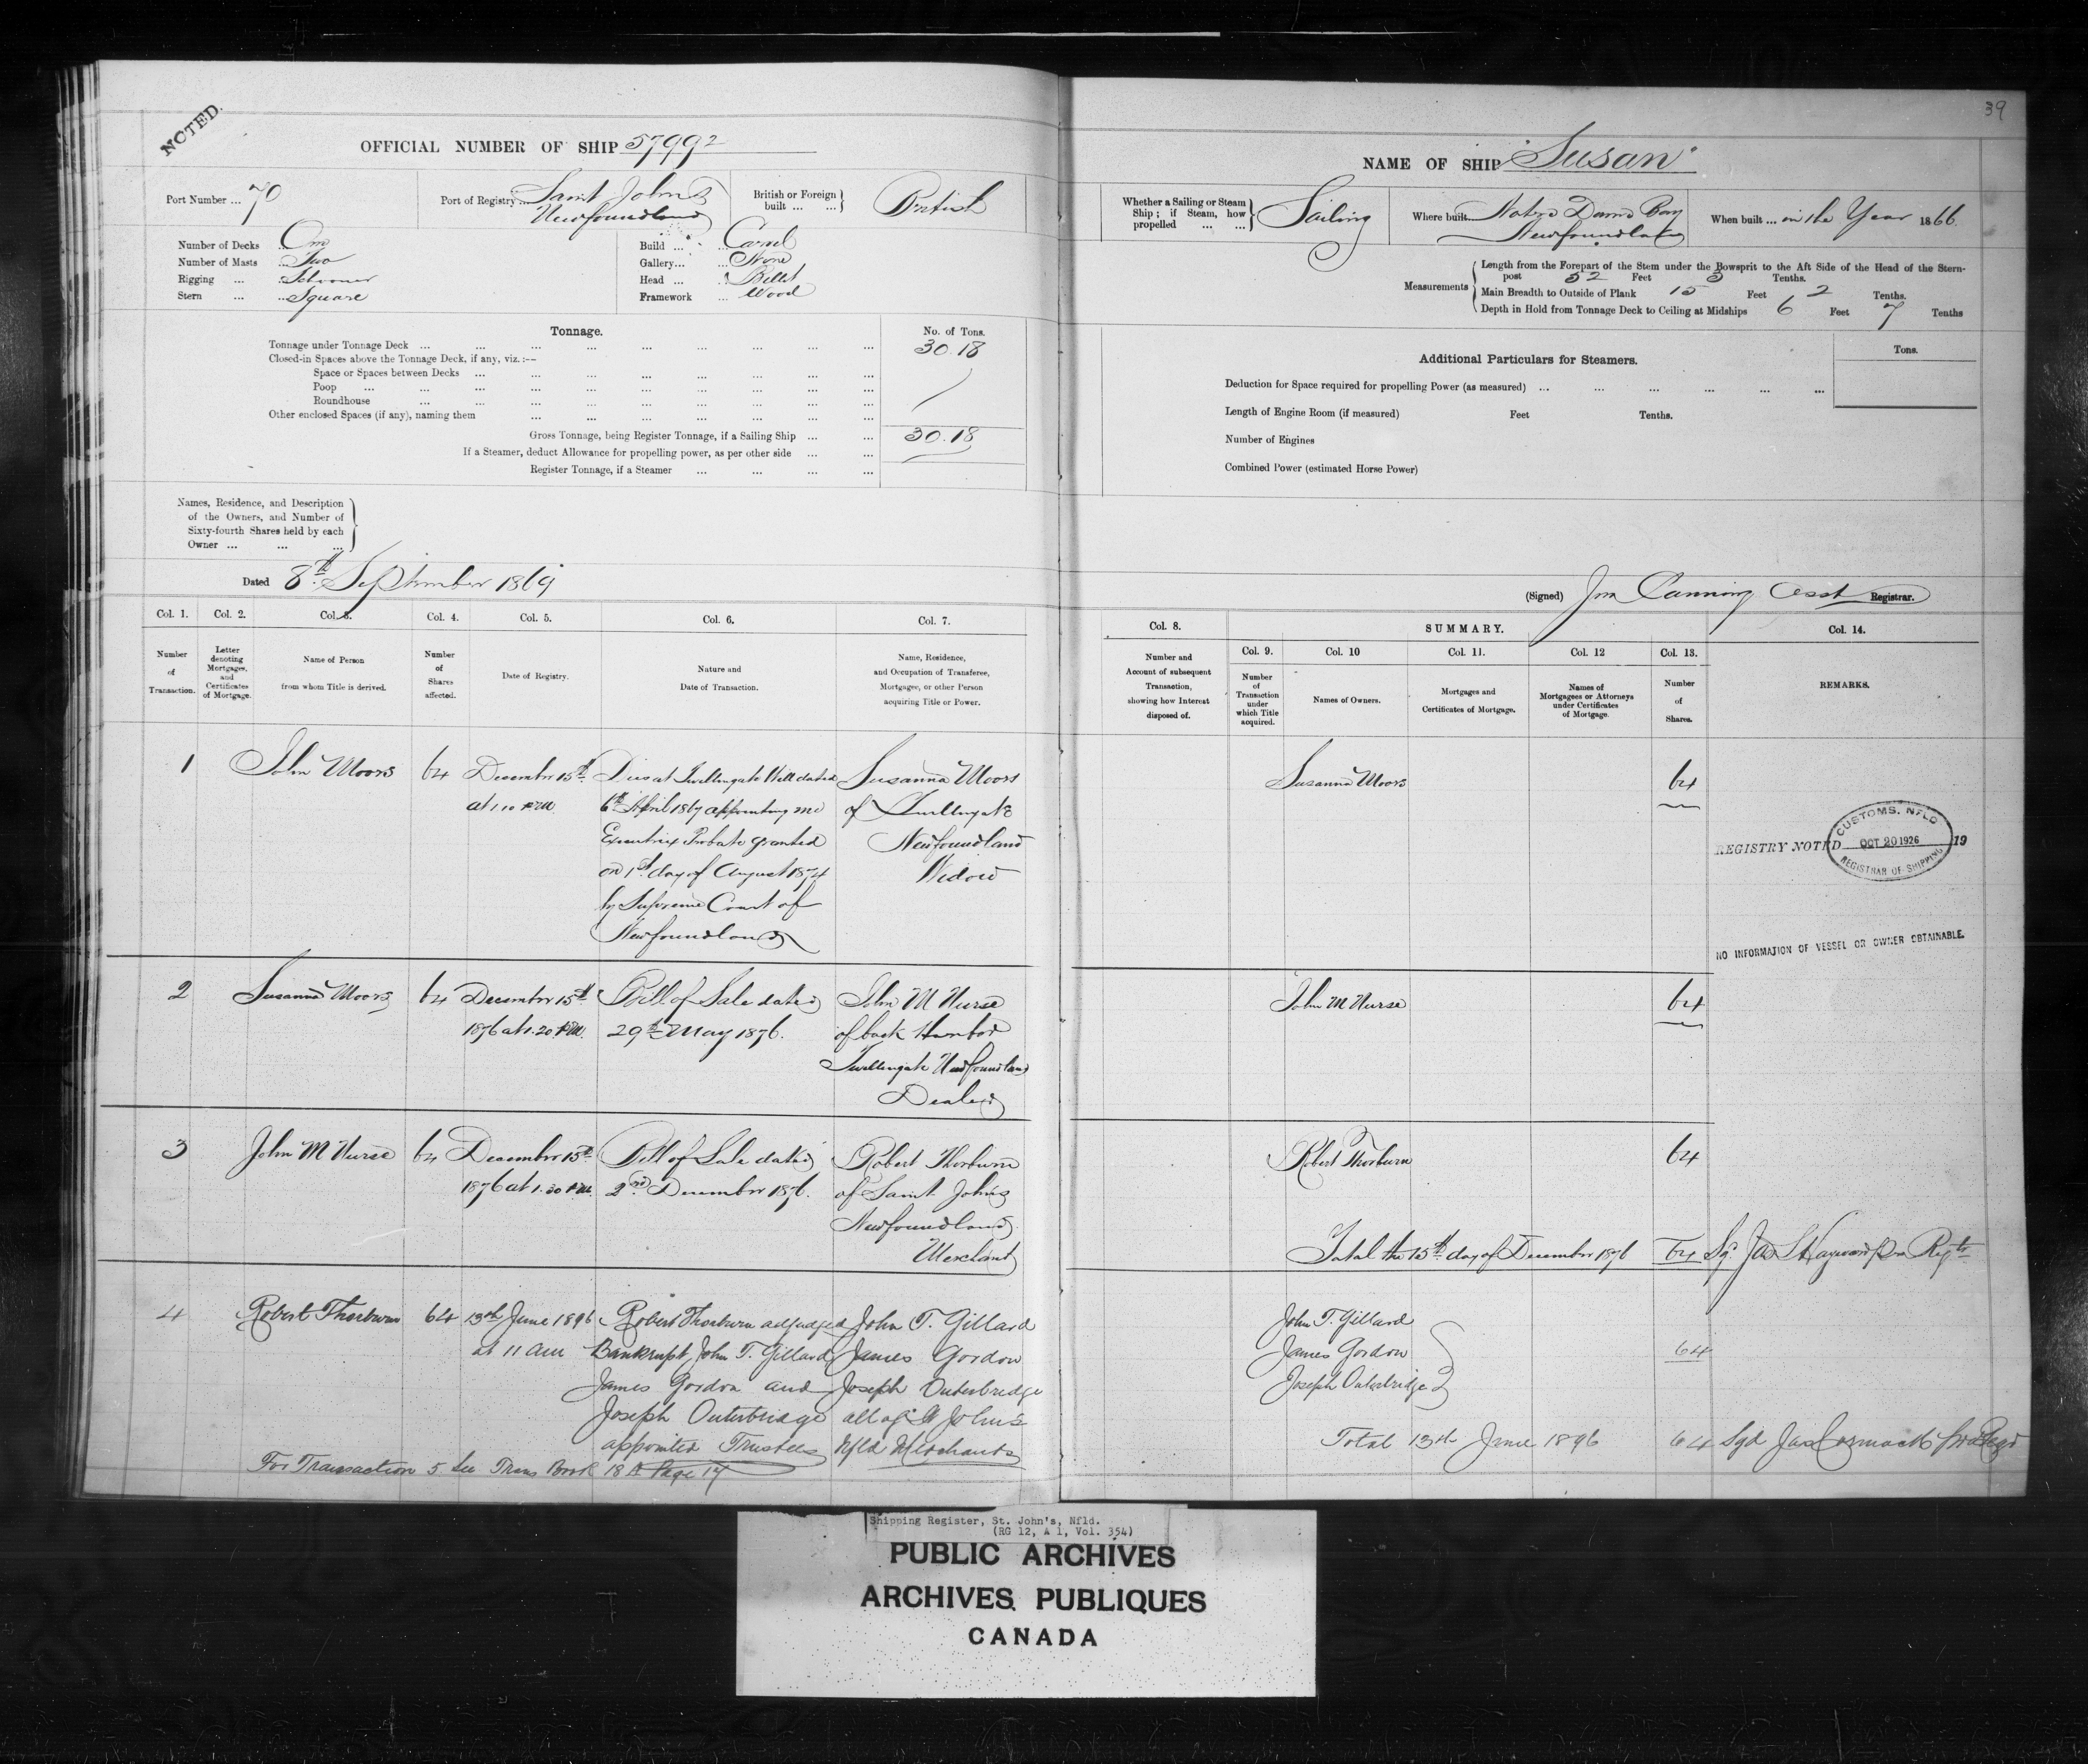 39
NOTED.
OFFICIAL NUMBER OF SHIP 57992
NAME OF SHIP "Susan"
Port Number ... 70
Port of Registry ... Saint John's
Newfoundland
British or Foreign built ... ... British
Whether a Sailing or Steam Ship; if Steam, how propelled ... ... Sailing
Where built Notre Dame Bay
Newfoundland
When built ... in the Year 1866.
Number of Decks ... One
Number of Masts ... Two
Rigging ... Schooner
Stern ... ... Square
Build ... ... Carvel
Gallery... ... None
Head ... ... Billet
Framework ... Wood
Measurements
Length from the Forepart of the Stem under the Bowsprit to the Aft Side of the Head of the Stern-
post 52 Feet 5 Tenths.
Main Breadth to Outside of Plank 15 Feet 2 Tenths.
Depth in Hold from Tonnage Deck to Ceiling at Midships 6 Feet 7 Tenths
Tonnage. No. of Tons.
Tonnage under Tonnage Deck ... ... ... ... ... ... ... ... 30.18
Closed-in Spaces above the Tonnage Deck, if any, viz.:--
Space or Spaces between Decks ... ... ... ... ... ... ... ...
Poop ... ... ... ... ... ... ... ... ...
Roundhouse ... ... ... ... ... ... ... ...
Other enclosed Spaces (if any), naming them ... ... ... ... ... ... ...
Gross Tonnage, being Register Tonnage, if a Sailing Ship ... ... 30.18
If a Steamer, deduct Allowance for propelling power, as per other side ... ...
Register Tonnage, if a Steamer ... ... ... ...
Additional Particulars for Steamers. Tons.
Deduction for Space required for propelling Power (as measured) ... ... ... ... ... ...
Length of Engine Room (if measured) Feet Tenths.
Number of Engines
Combined Power (estimated Horse Power)
Names, Residence, and Description
of the Owners, and Number of
Sixty-fourth Shares held by each
Owner ... ... ...
Dated 8th September 1869
(Signed) Jno Canning Asst Registrar.
Col. 1. Col. 2. Col. 3. Col. 4. Col. 5. Col. 6. Col. 7.
Number of Transaction.
Letter denoting Mortgages, and Certificates of Mortgage.
Name of Person from whom Title is derived.
Number of Shares affected.
Date of Registry.
Nature and Date of Transaction.
Name, Residence, and Occupation of Transferee, Mortgagee, or other Person acquiring Title or Power.
Col. 8. SUMMARY. Col. 14.
Col. 9. Col. 10 Col. 11. Col. 12 Col. 13.
Number and Account of subsequent Transaction, showing how Interest disposed of.
Number of Transaction under which Title acquired.
Names of Owners.
Mortgages and Certificates of Mortgage.
Names of Mortgagees or Attorneys under Certificates of Mortgage.
Number of Shares.
REMARKS.
1 John Moors 64 December 15th
at 1.10 P.M.
Dies at Twillingate Will dated
6th April 1867 appointing me
Executrix Probate granted
on 1st day of August 1874
by Supreme Court of
Newfoundland
Susanna Moors
of Twillingate
Newfoundland
Widow
Susanna Moors 64
REGISTRY NOTED 19
CUSTOMS. NFLD
OCT 20 1926
REGISTRAR OF SHIPPING
NO INFORMATION OF VESSEL OR OWNER OBTAINABLE.
2 Susanna Moors 64 December 15th
1876 at 1.20 P.M.
Bill of Sale dated
29th May 1876.
John M Nurse
of back Harbor
Twillingate Newfoundland
Dealer
John M Nurse 64
3 John M Nurse 64 December 15th
1876 at 1.30 P.M.
Bill of Sale dated
2nd December 1876.
Robert Thorburn
of Saint John's
Newfoundland
Merchant
Robert Thorburn 64
Total the 15th day of December 1876 64
4 Robert Thorburn 64 13th June 1896
at 11 am
Robert Thorburn adjudged
Bankrupt, John T. Gillard
James Gordon and
Joseph Outerbridge
appointed Trustees
John T. Gillard
James Gordon
Joseph Outerbridge
all of St John's
Nfld Merchants
John T. Gillard
James Gordon
Joseph Outerbridge
64
Total 13th June 1896 64 Sgd Jas Cormack
For Transaction 5 see Trans Book 18 A Page 17
Shipping Register, St. John's, Nfld.
(RG 12, A 1, Vol. 354)
PUBLIC ARCHIVES
ARCHIVES PUBLIQUES
CANADA